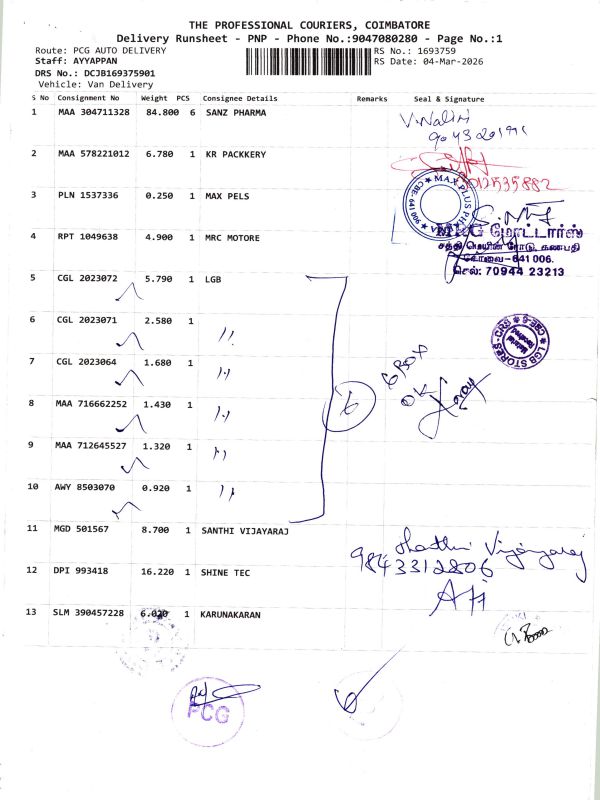 THE PROFESSIONAL COURIERS, COIMBATORE
Delivery Runsheet - PNP - Phone No.:9047080280 - Page No.:1
Route: PCG AUTO DELIVERY RS No.: 1693759
Staff: AYYAPPAN RS Date: 04-Mar-2026
DRS No.: DCJB169375901
Vehicle: Van Delivery
S No Consignment No Weight PCS Consignee Details Remarks Seal & Signature
1 MAA 304711328 84.800 6 SANZ PHARMA
2 MAA 578221012 6.780 1 KR PACKKERY
3 PLN 1537336 0.250 1 MAX PELS
MAX PLUS
CBE-641 006
4 RPT 1049638 4.900 1 MRC MOTORE
மோட்டார்ஸ்
சத்தி மெயின் ரோடு, கணபதி
கோவை-641 006.
செல்: 70944 23213
5 CGL 2023072 5.790 1 LGB
6 CGL 2023071 2.580 1 "
LGB STORES-CRS CBE-6
Material Received
7 CGL 2023064 1.680 1 "
6 BOX
8 MAA 716662252 1.430 1 " 6 OK
9 MAA 712645527 1.320 1 "
10 AWY 8503070 0.920 1 "
11 MGD 501567 8.700 1 SANTHI VIJAYARAJ
Shanthi Vijayaraj
9843312806
12 DPI 993418 16.220 1 SHINE TEC
13 SLM 390457228 6.020 1 KARUNAKARAN
PCG